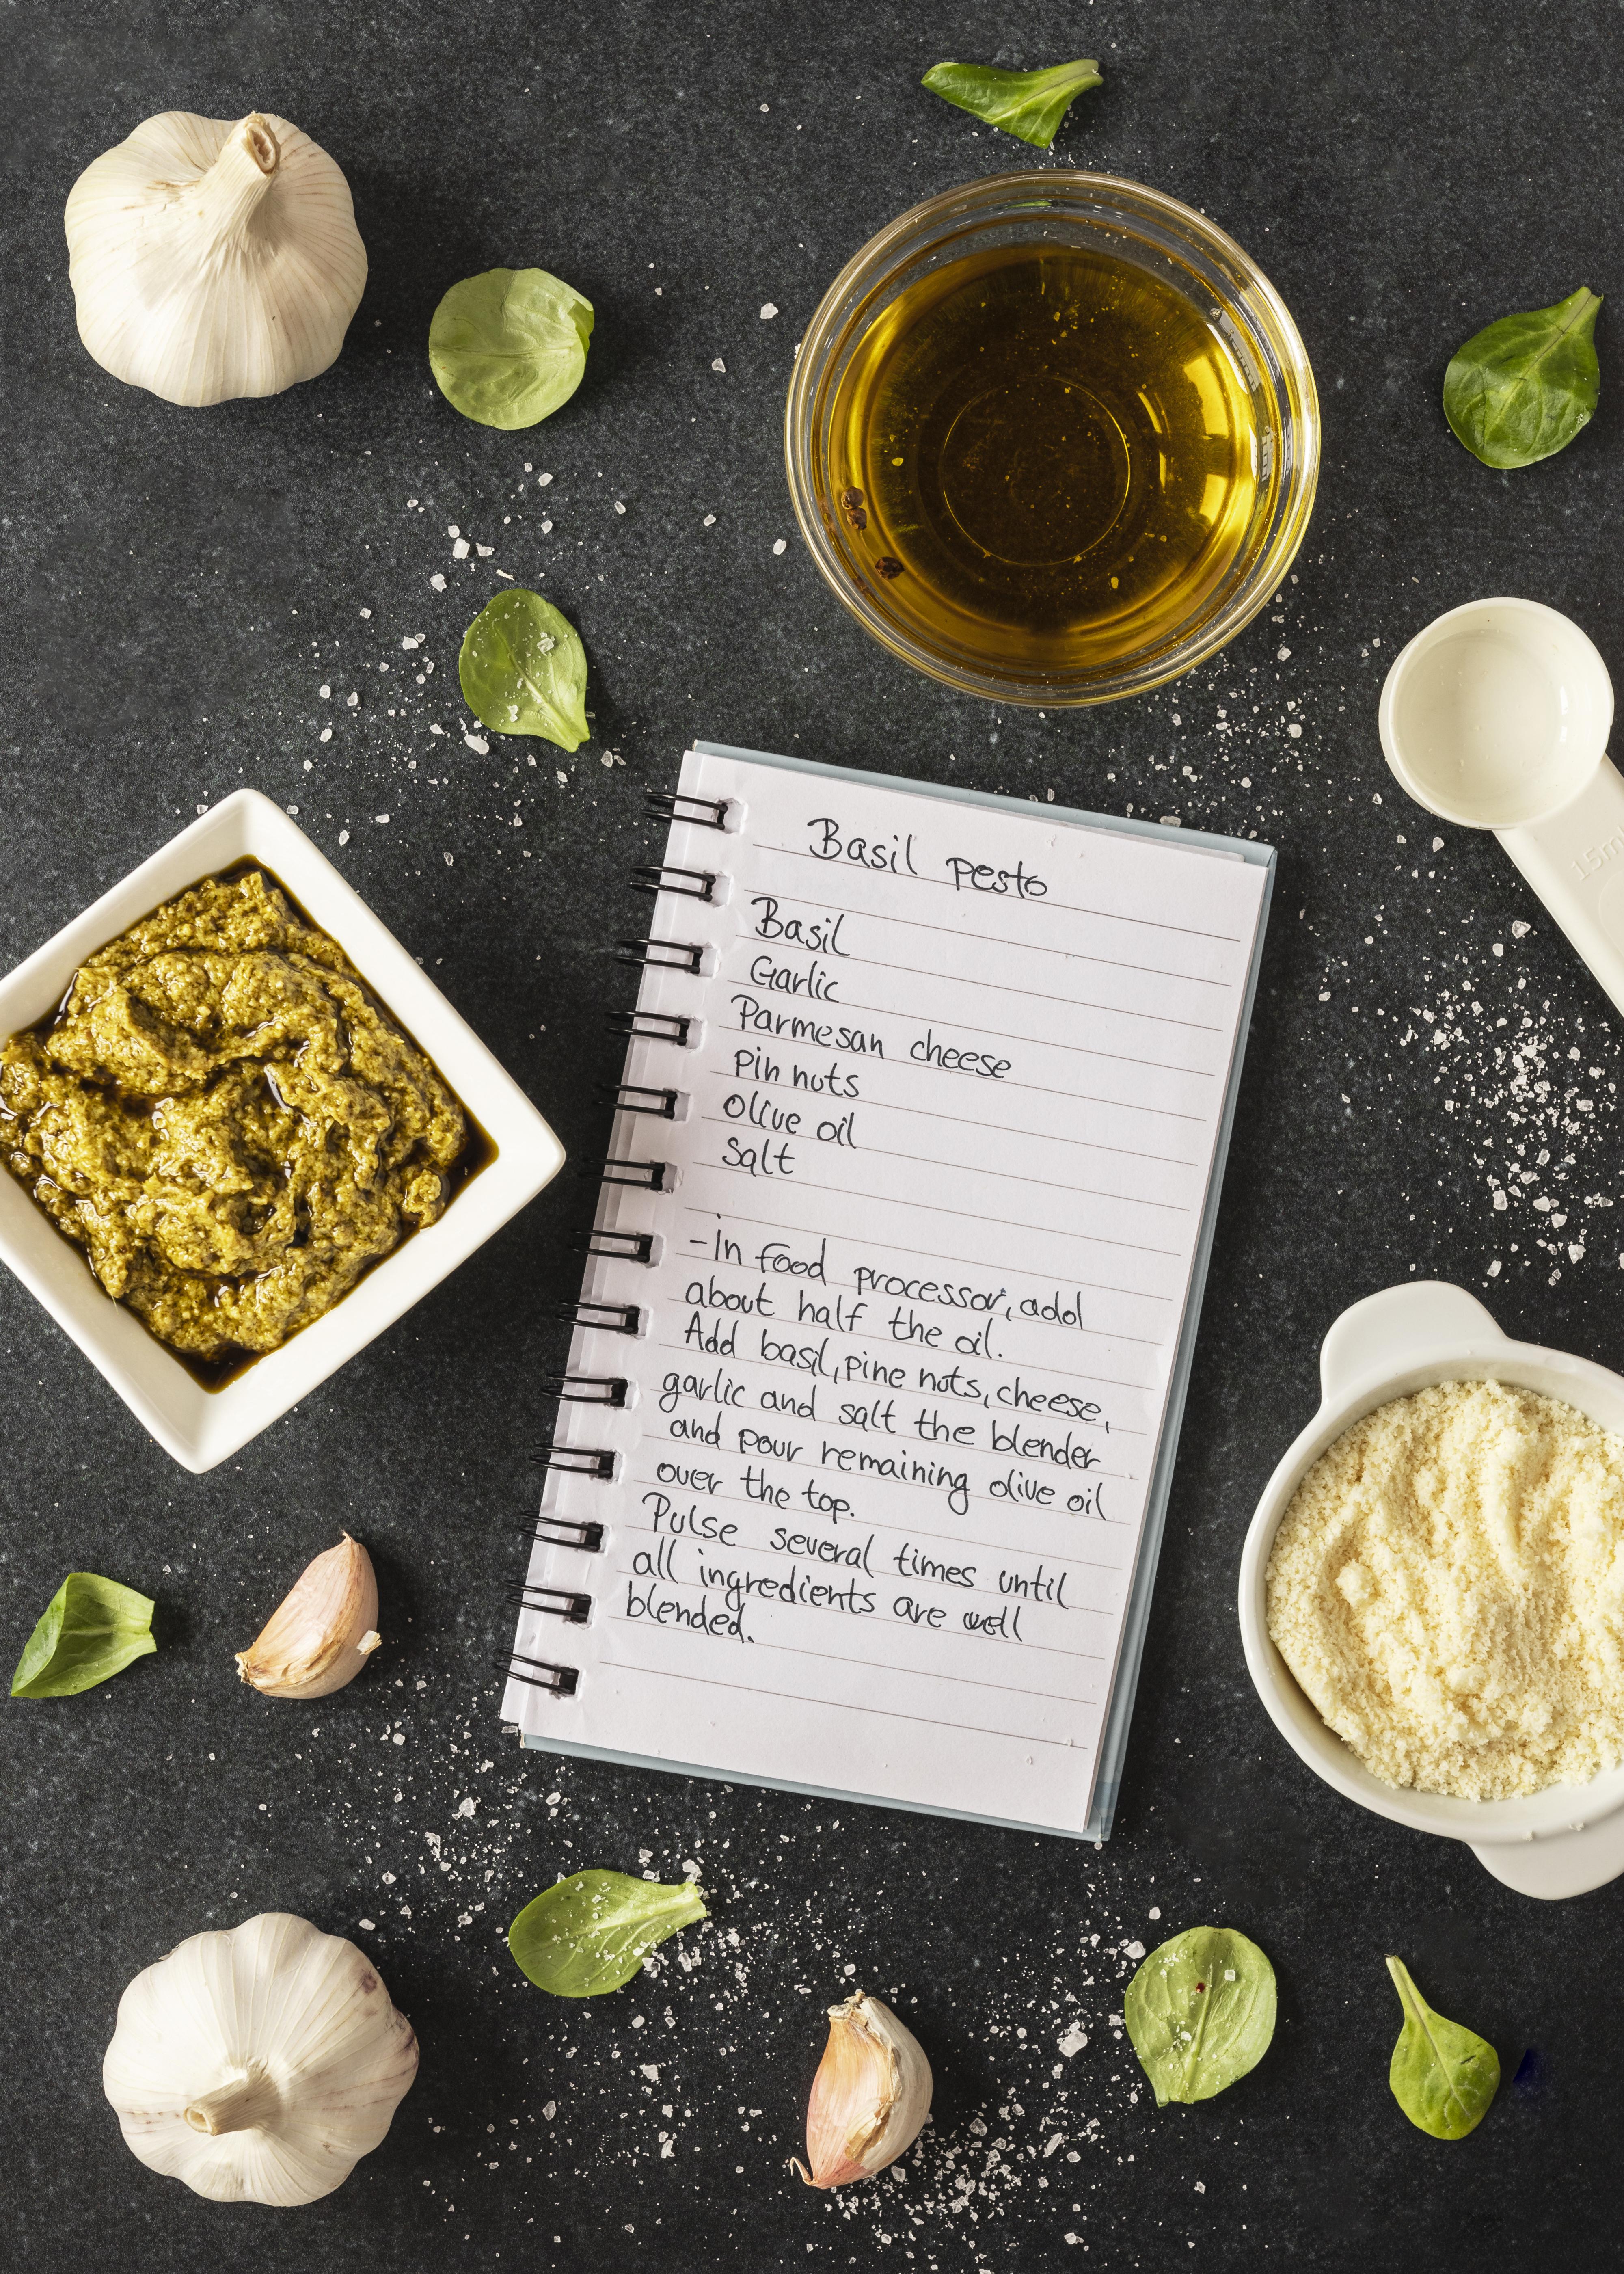 Basil pesto
Basil
Garlic
Parmesan cheese
pin nuts
olive oil
salt
-In food processor, add
about half the oil.
Add basil, pine nuts, cheese,
garlic and salt the blender
and pour remaining olive oil
over the top.
Pulse several times until
all ingredients are well
blended.